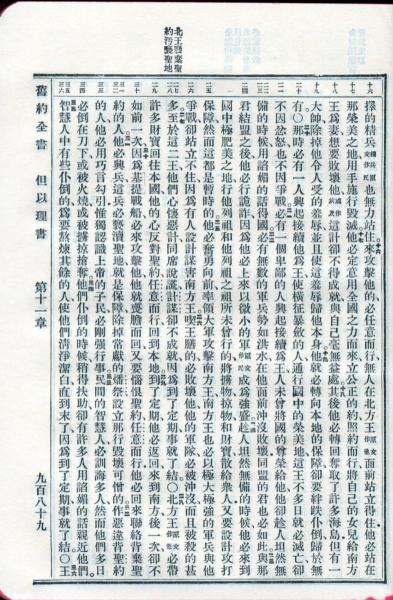 擇的精兵也無力站住來攻擊他的必任意而行無人在北方王面前站立得住他必站在
那榮美之地用手施行毀滅他必定意用全國之力而來立公正的約照約而行將自己的女兒給南方
王爲妻想要敗壞他這計卻不得成就與自己毫無益處其後他必轉回奪取了許多海島但有一
大帥除掉他令人受的羞辱並且使這羞辱歸他本身他就必轉向本地的保障卻要絆跌仆倒歸於無
有○那時必有一人興起接續他爲王使橫征暴斂的人通行國中的榮美地這王不多日就必滅亡卻
不因忿怒也不因爭戰必有一個卑鄙的人興起接續爲王人未曾將國的尊榮給他他卻趁人坦然無
備的時候用諂媚的話得國必有無數的軍兵勢如洪水在他面前沖沒敗壞同盟的君也必如此與那
君結盟之後他必行詭詐因爲他必上來以微小的軍成爲強盛趁人坦然無備的時候他必來到
國中極肥美之地行他列祖和他列祖之祖所未曾行的將擄物掠物和財寶散給衆人又要設計攻打
保障然而這都是暫時的他必奮勇向前率領大軍攻擊南方王南方王也必以極大極強的軍兵與他
爭戰卻站立不住因爲有人設計謀害南方王喫王膳的必敗壞他他的軍隊必被沖沒而且被殺的甚
多至於這二王他們心懷惡計同席說謊計謀卻不成就因爲到了定期事就了結○北方王必帶
許多財寶回往本國他的心反對聖約任意而行回到本地到了定期他必返回來到南方後一次卻不
如前一次因爲基提戰船必來攻擊他他就喪膽而回又要惱恨聖約任意而行他必回來聯絡背棄聖
約的人他必興兵這兵必褻瀆聖地就是保障除掉常獻的燔祭設立那行毀壞可憎的作惡違背聖約
的人他必用巧言勾引惟獨認識上帝的子民必剛強行事民間的智慧人必訓誨多人然而他們多日
必倒在刀下或被火燒或被擄掠搶奪他們仆倒的時候稍得扶助卻有許多人用諂媚的話親近他們
智慧人中有些仆倒的爲要熬煉其餘的人使他們清淨潔白直到末了因爲到了定期事就了結○王
舊約全書 但以理書 第十一章 九百八十九